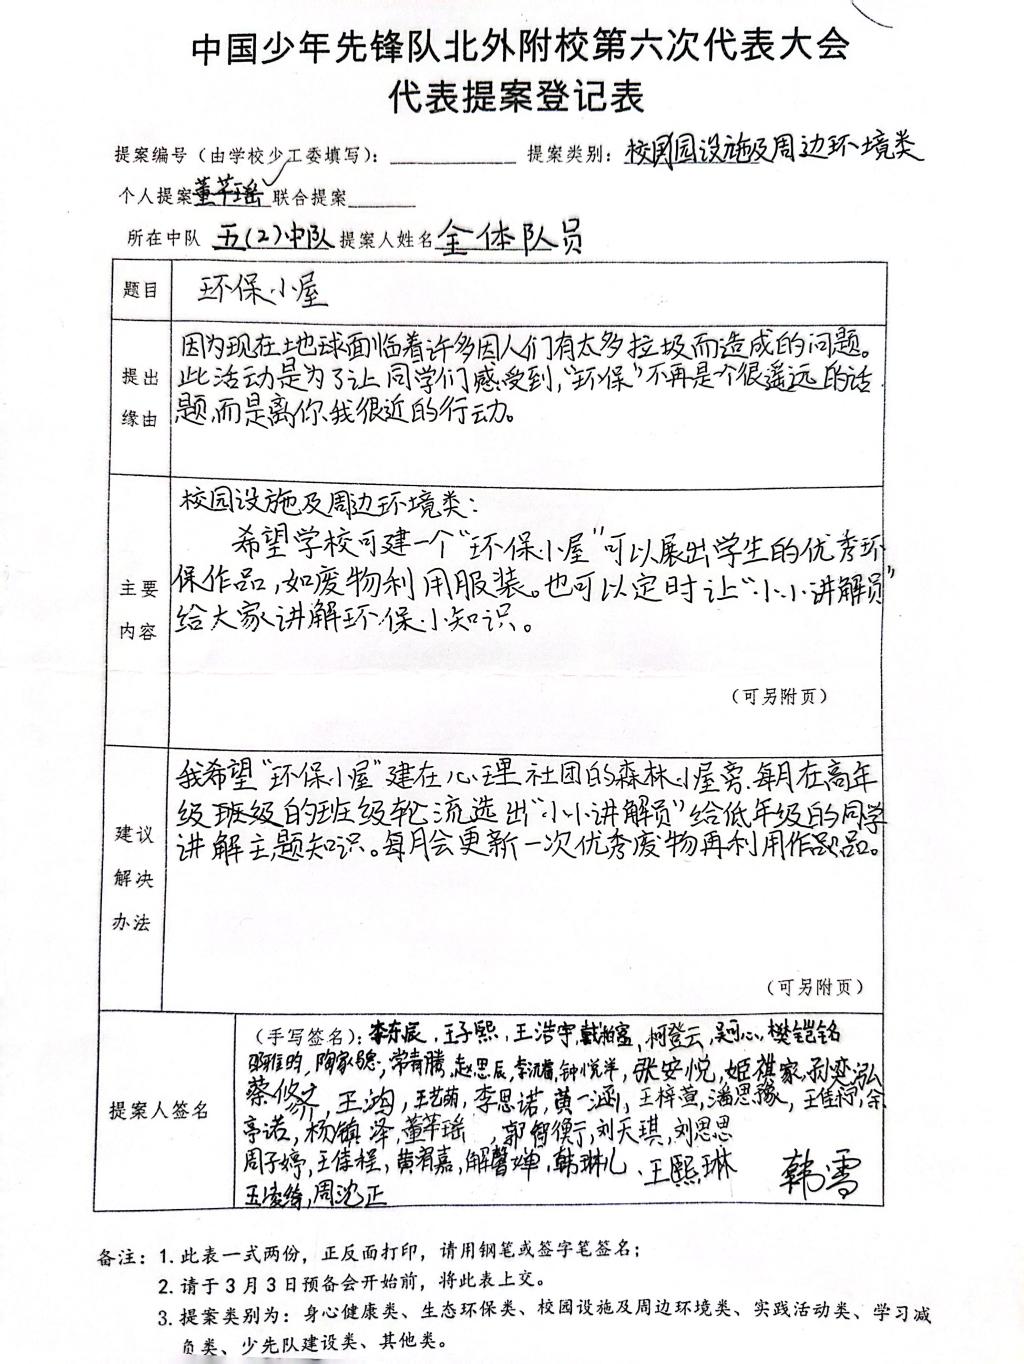 中国少年先锋队北外附校第六次代表大会
代表提案登记表
提案编号（由学校少工委填写）：__________ 提案类别：校园设施及周边环境类
个人提案董芊瑶✓联合提案______
所在中队 五(2)中队 提案人姓名 全体队员
题目 环保小屋
提出
缘由
因为现在地球面临着许多因人们有太多垃圾而造成的问题。
此活动是为了让同学们感受到，“环保”不再是个很遥远的话
题，而是离你、我很近的行动。
主要
内容
校园设施及周边环境类：
希望学校可建一个“环保小屋”可以展出学生的优秀环
保作品，如废物利用服装。也可以定时让“小小讲解员”
给大家讲解环保小知识。
（可另附页）
建议
解决
办法
我希望“环保小屋”建在心理社团的森林小屋旁，每月在高年
级班级的班级轮流选出“小小讲解员”给低年级的同学
讲解主题知识。每月会更新一次优秀废物再利用作品。
（可另附页）
提案人签名
（手写签名）：李东辰，王子熙，王浩宇，戴柏富，柯登云，吴可心，樊铠铭
陶家骢，常青腾，赵思辰，钟悦洋，张安悦，姬祺家，孙奕泓
蔡修齐，王鸿，王艺萌，李思诺，黄一涵，王梓萱，潘思豫，王佳柠，余
亭诺，杨镇泽，董芊瑶，郭智衡，刘天琪，刘思思
周子婷，王佳程，黄君嘉，解馨婵，韩琳儿、王熙琳 韩雪
王凌绮，周沈正
备注：1. 此表一式两份，正反面打印，请用钢笔或签字笔签名；
2. 请于3月3日预备会开始前，将此表上交。
3. 提案类别为：身心健康类、生态环保类、校园设施及周边环境类、实践活动类、学习减
负类、少先队建设类、其他类。